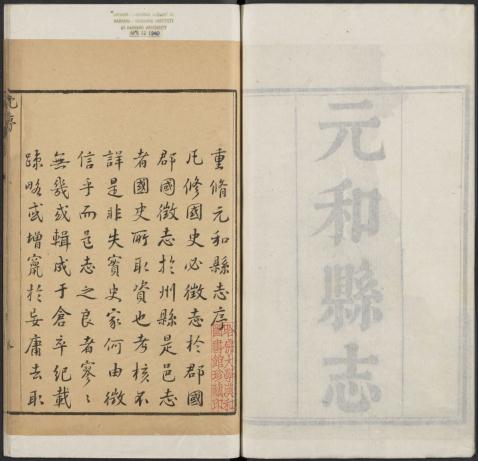 元和縣志
HARVARD-YENCHING INSTITUTE
AT HARVARD UNIVERSITY
重脩元和縣志序
凡修國史必徵志於郡國
郡國徵志於州縣是邑志
者國史所取資也考核不
詳是非失實史家何由徵
信乎而邑志之良者寥〻
無幾或輯成于倉卒紀載
踈略或增竄於妄庸去取
哈佛大學漢和
圖書館珍藏印
序